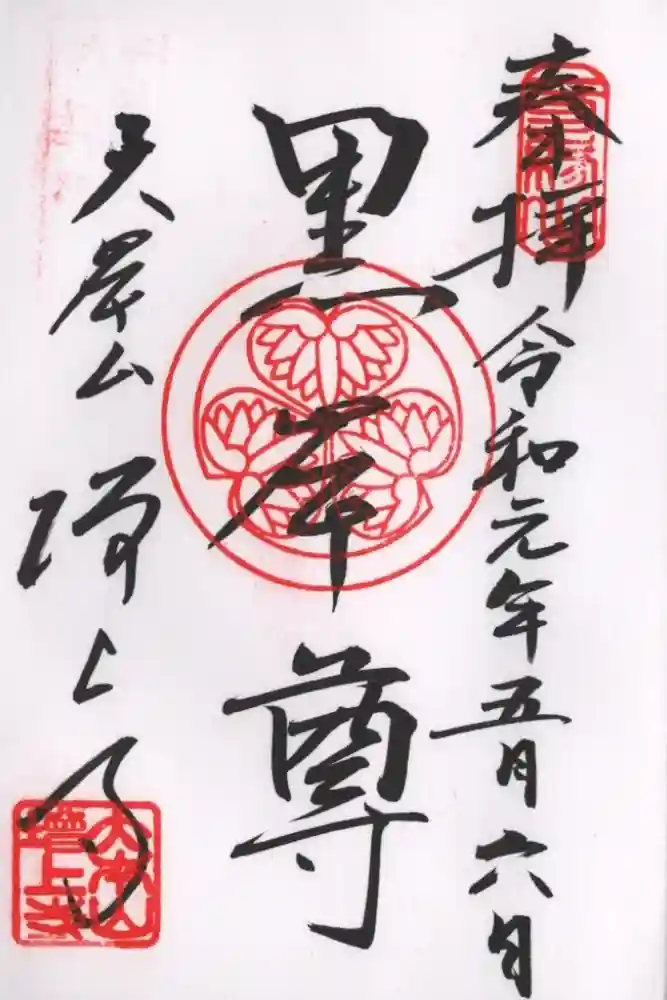 奉拝 令和元年五月六日
三縁山
黒本尊
大本山 増上寺
大本山
増上寺